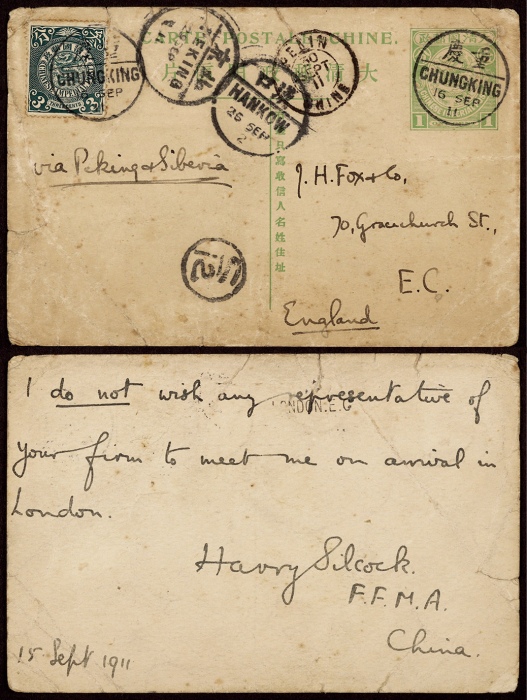 CARTE POSTALE CHINE.
3
3
CHUNGKING
SEP
PEKING
漢口
HANKOW
26 SEP
2
PEKIN
CHINE
重慶
CHUNGKING
16 SEP
11
1
1
via Peking & Siberia
只寫收信人名姓住址
J. H. Fox & Co,
70, Gracechurch St.,
E.C.
England
I do not wish any representative of
LONDON.E.C
your firm to meet me on arrival in
London.
Harry Silcock.
F.F.M.A.
China.
15 Sept 1911